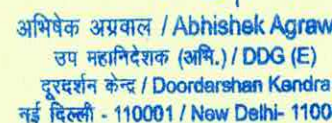 अभिषेक अग्रवाल / Abhishek Agraw
उप महानिदेशक (अभि.) / DDG (E)
दूरदर्शन केन्द्र / Doordarshan Kendra
नई दिल्ली - 110001 / New Delhi- 1100